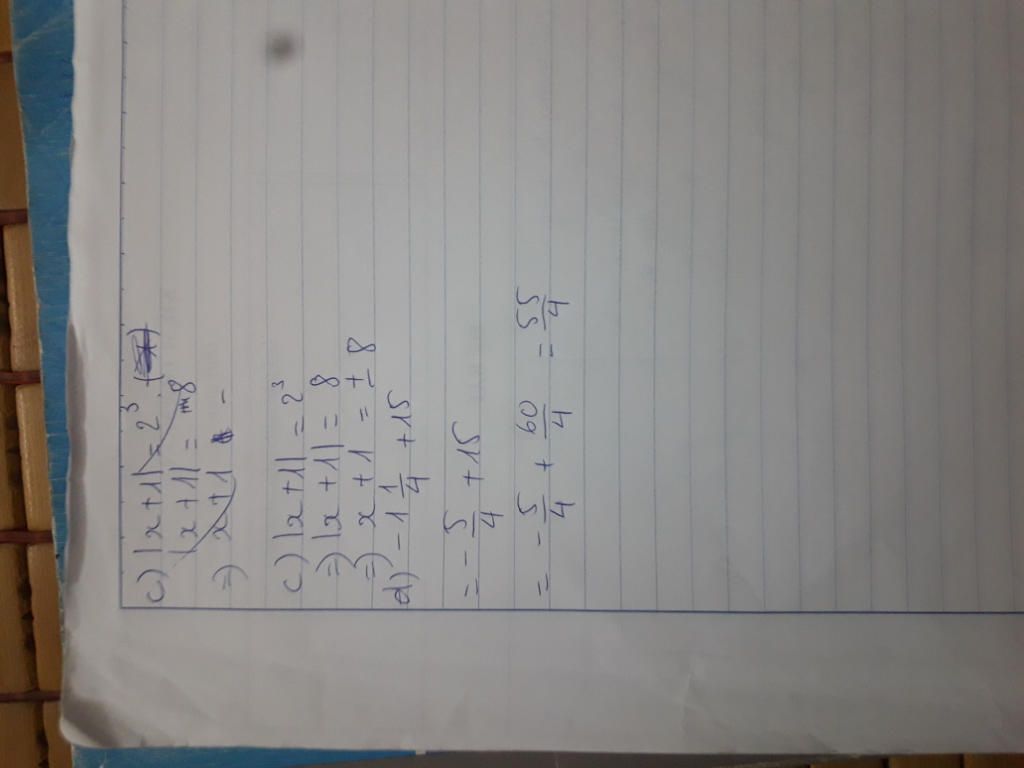 c) |x+1| = 2³.
|x+1| = 8
=) x+1 -
c) |x+1| = 2³
=) |x+1| = 8
=) x+1 = ± 8
d) -1 1/4 + 15
= - 5/4 + 15
= - 5/4 + 60/4 = 55/4